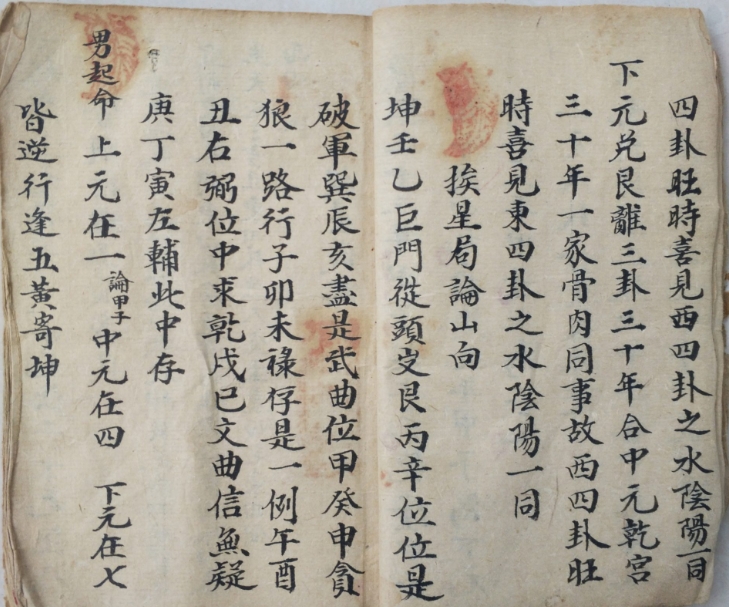 四卦旺時喜見西四卦之水陰陽一同
下元兑艮離三卦三十年合中元乾宫
三十年一家骨肉同事故西四卦旺
時喜見東四卦之水陰陽一同
挨星局論山向
坤壬乙巨門從頭出艮丙辛位位是
破軍巽辰亥盡是武曲位甲癸申貪
狼一路行子卯未祿存是一例午酉
丑右弼位中求乾戌巳文曲信無疑
庚丁寅左輔此中存
男起命 上元在一 論甲子 中元在四 下元在七
皆逆行逢五黃寄坤